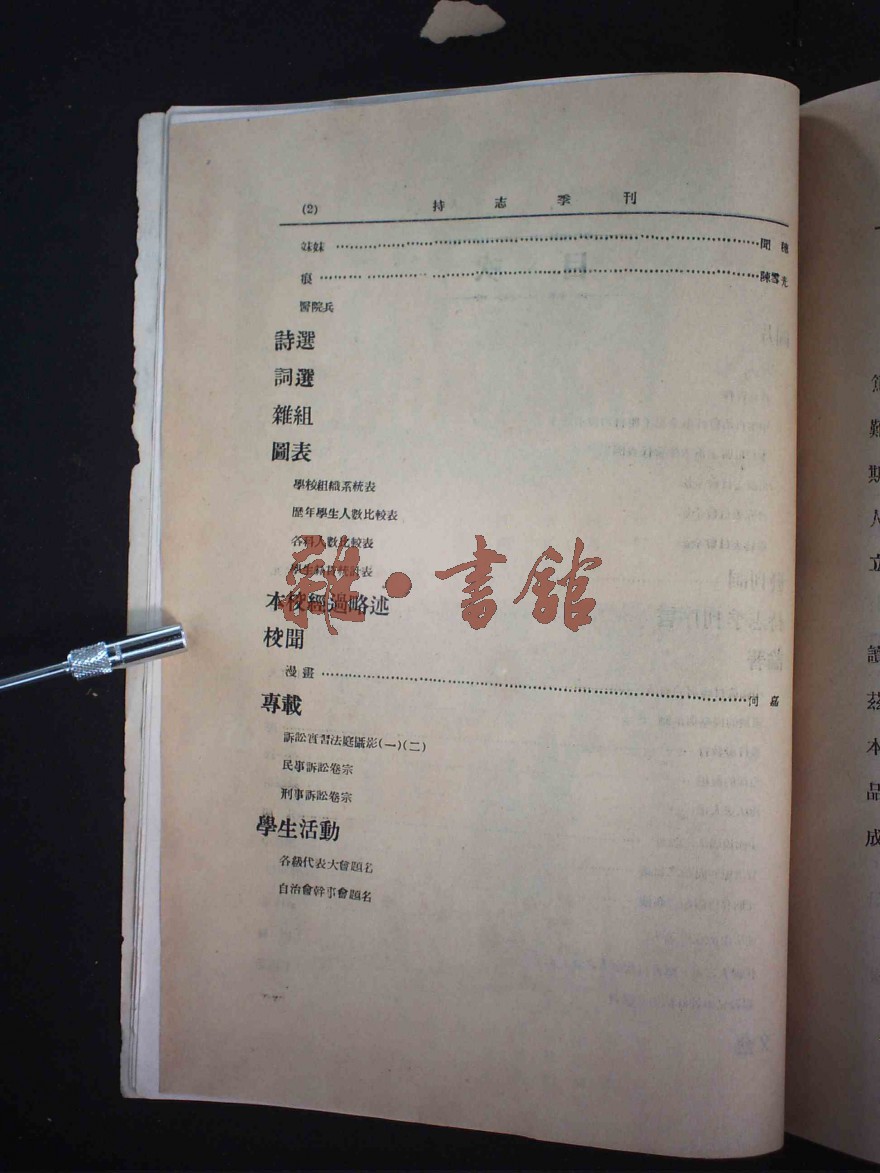 (2) 持志季刊
妹妹 聞
痕 陳雪光
醫院兵
詩選
詞選
雜組
圖表
學校組織系統表
歷年學生人數比較表
各科人數比較表
學生籍貫統計表
雜·書館
本校經過略述
校聞
漫畫 何
專載
訴訟實習法庭攝影(一)(二)
民事訴訟卷宗
刑事訴訟卷宗
學生活動
各級代表大會題名
自治會幹事會題名
難
期
人
立
讀
茲
本
品
成